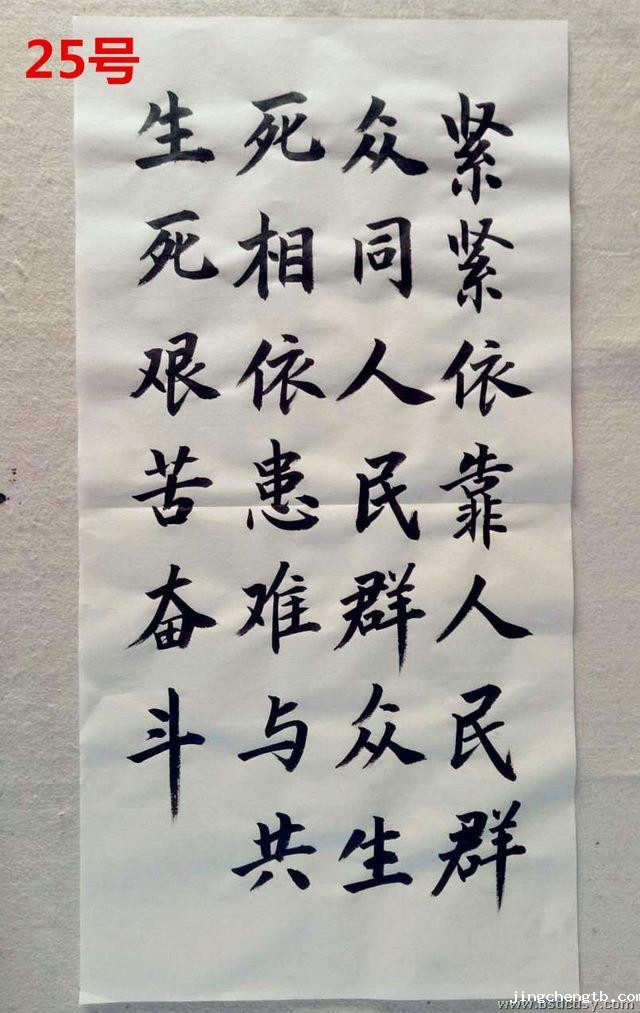 25号
紧紧依靠人民群
众同人民群众生
死相依患难与共
生死艰苦奋斗
jingchengtb.com